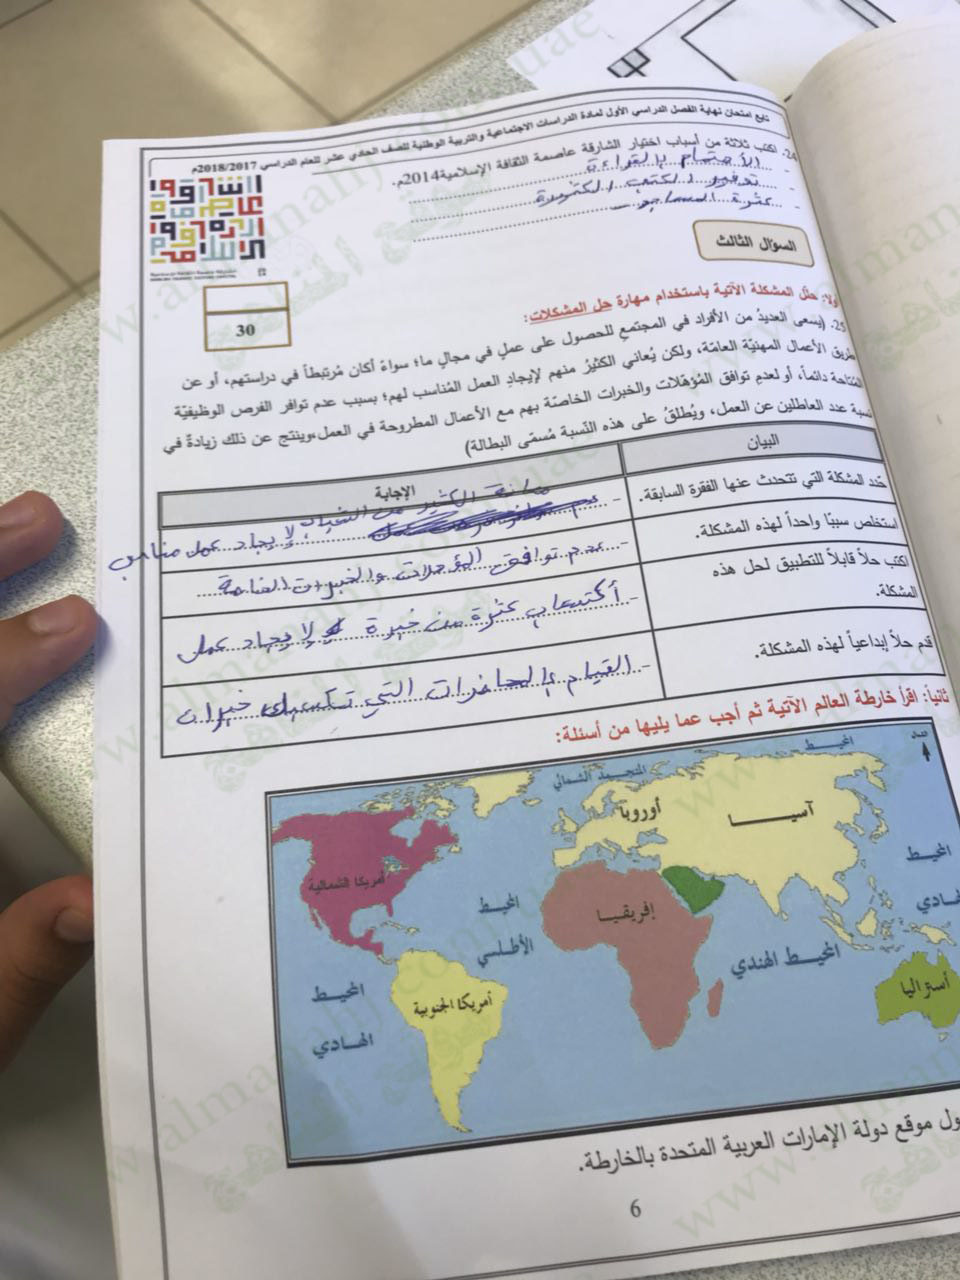 تابع امتحان نهاية الفصل الدراسي الأول لمادة الدراسات الاجتماعية والتربية الوطنية للصف الحادي عشر للعام الدراسي 2018/2017م
24. اكتب ثلاثة من أسباب اختيار الشارقة عاصمة الثقافة الإسلامية2014م.
- الأهتمام بالقراءة
- توفير الكتب الكثيرة
- كثرة المساجد
السؤال الثالث
30
أولا: حلل المشكلة الآتية باستخدام مهارة حل المشكلات:
25. (يسعى العديدُ من الأفراد في المجتمع للحصول على عملٍ في مجالٍ ما؛ سواءً أكان مُرتبطاً في دراستهم، أو عن
طريق الأعمال المهنيّة العامّة، ولكن يُعاني الكثيرُ منهم لإيجادِ العمل المُناسب لهم؛ بسبب عدم توافر الفرص الوظيفيّة
المُتاحة دائماً، أو لعدم توافق المُؤهّلات والخبرات الخاصّة بهم مع الأعمال المطروحة في العمل،وينتج عن ذلك زيادةٌ في
نسبة عدد العاطلين عن العمل، ويُطلقُ على هذه النّسبة مُسمّى البطالة)
البيان
الإجابة
حدد المشكلة التي تتحدث عنها الفقرة السابقة.
الكثير من الشباب لإيجاد عمل مناسب
استخلص سببًا واحداً لهذه المشكلة.
- عدم توافق المؤهلات والخبرات الخاصة
اكتب حلاً قابلاً للتطبيق لحل هذه
المشكلة.
- أكتساب كثرة من خبرة لإيجاد عمل
قدم حلاً إبداعياً لهذه المشكلة.
- القيام بالمحاضرات التي تكسبك خبرات
ثانياً: اقرأ خارطة العالم الآتية ثم أجب عما يليها من أسئلة:
الشمال
المحيط
المتجمد الشمالي
أوروبا
آسيا
أمريكا الشمالية
المحيط
الأطلسي
إفريقيا
المحيط
الهادي
المحيط الهندي
أمريكا الجنوبية
أستراليا
المحيط
الهادي
موقع دولة الإمارات العربية المتحدة بالخارطة.
6